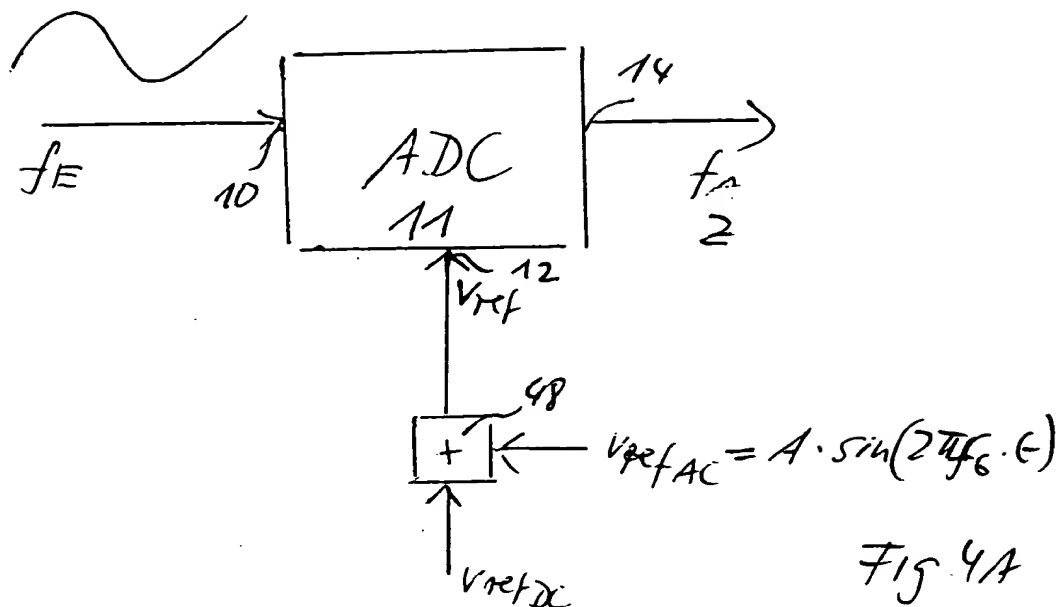 14
fE
10
ADC
11
fA
2
12
Vref
48
+
VrefAC = A · sin(2πfG · t)
VrefDC
Fig 4A